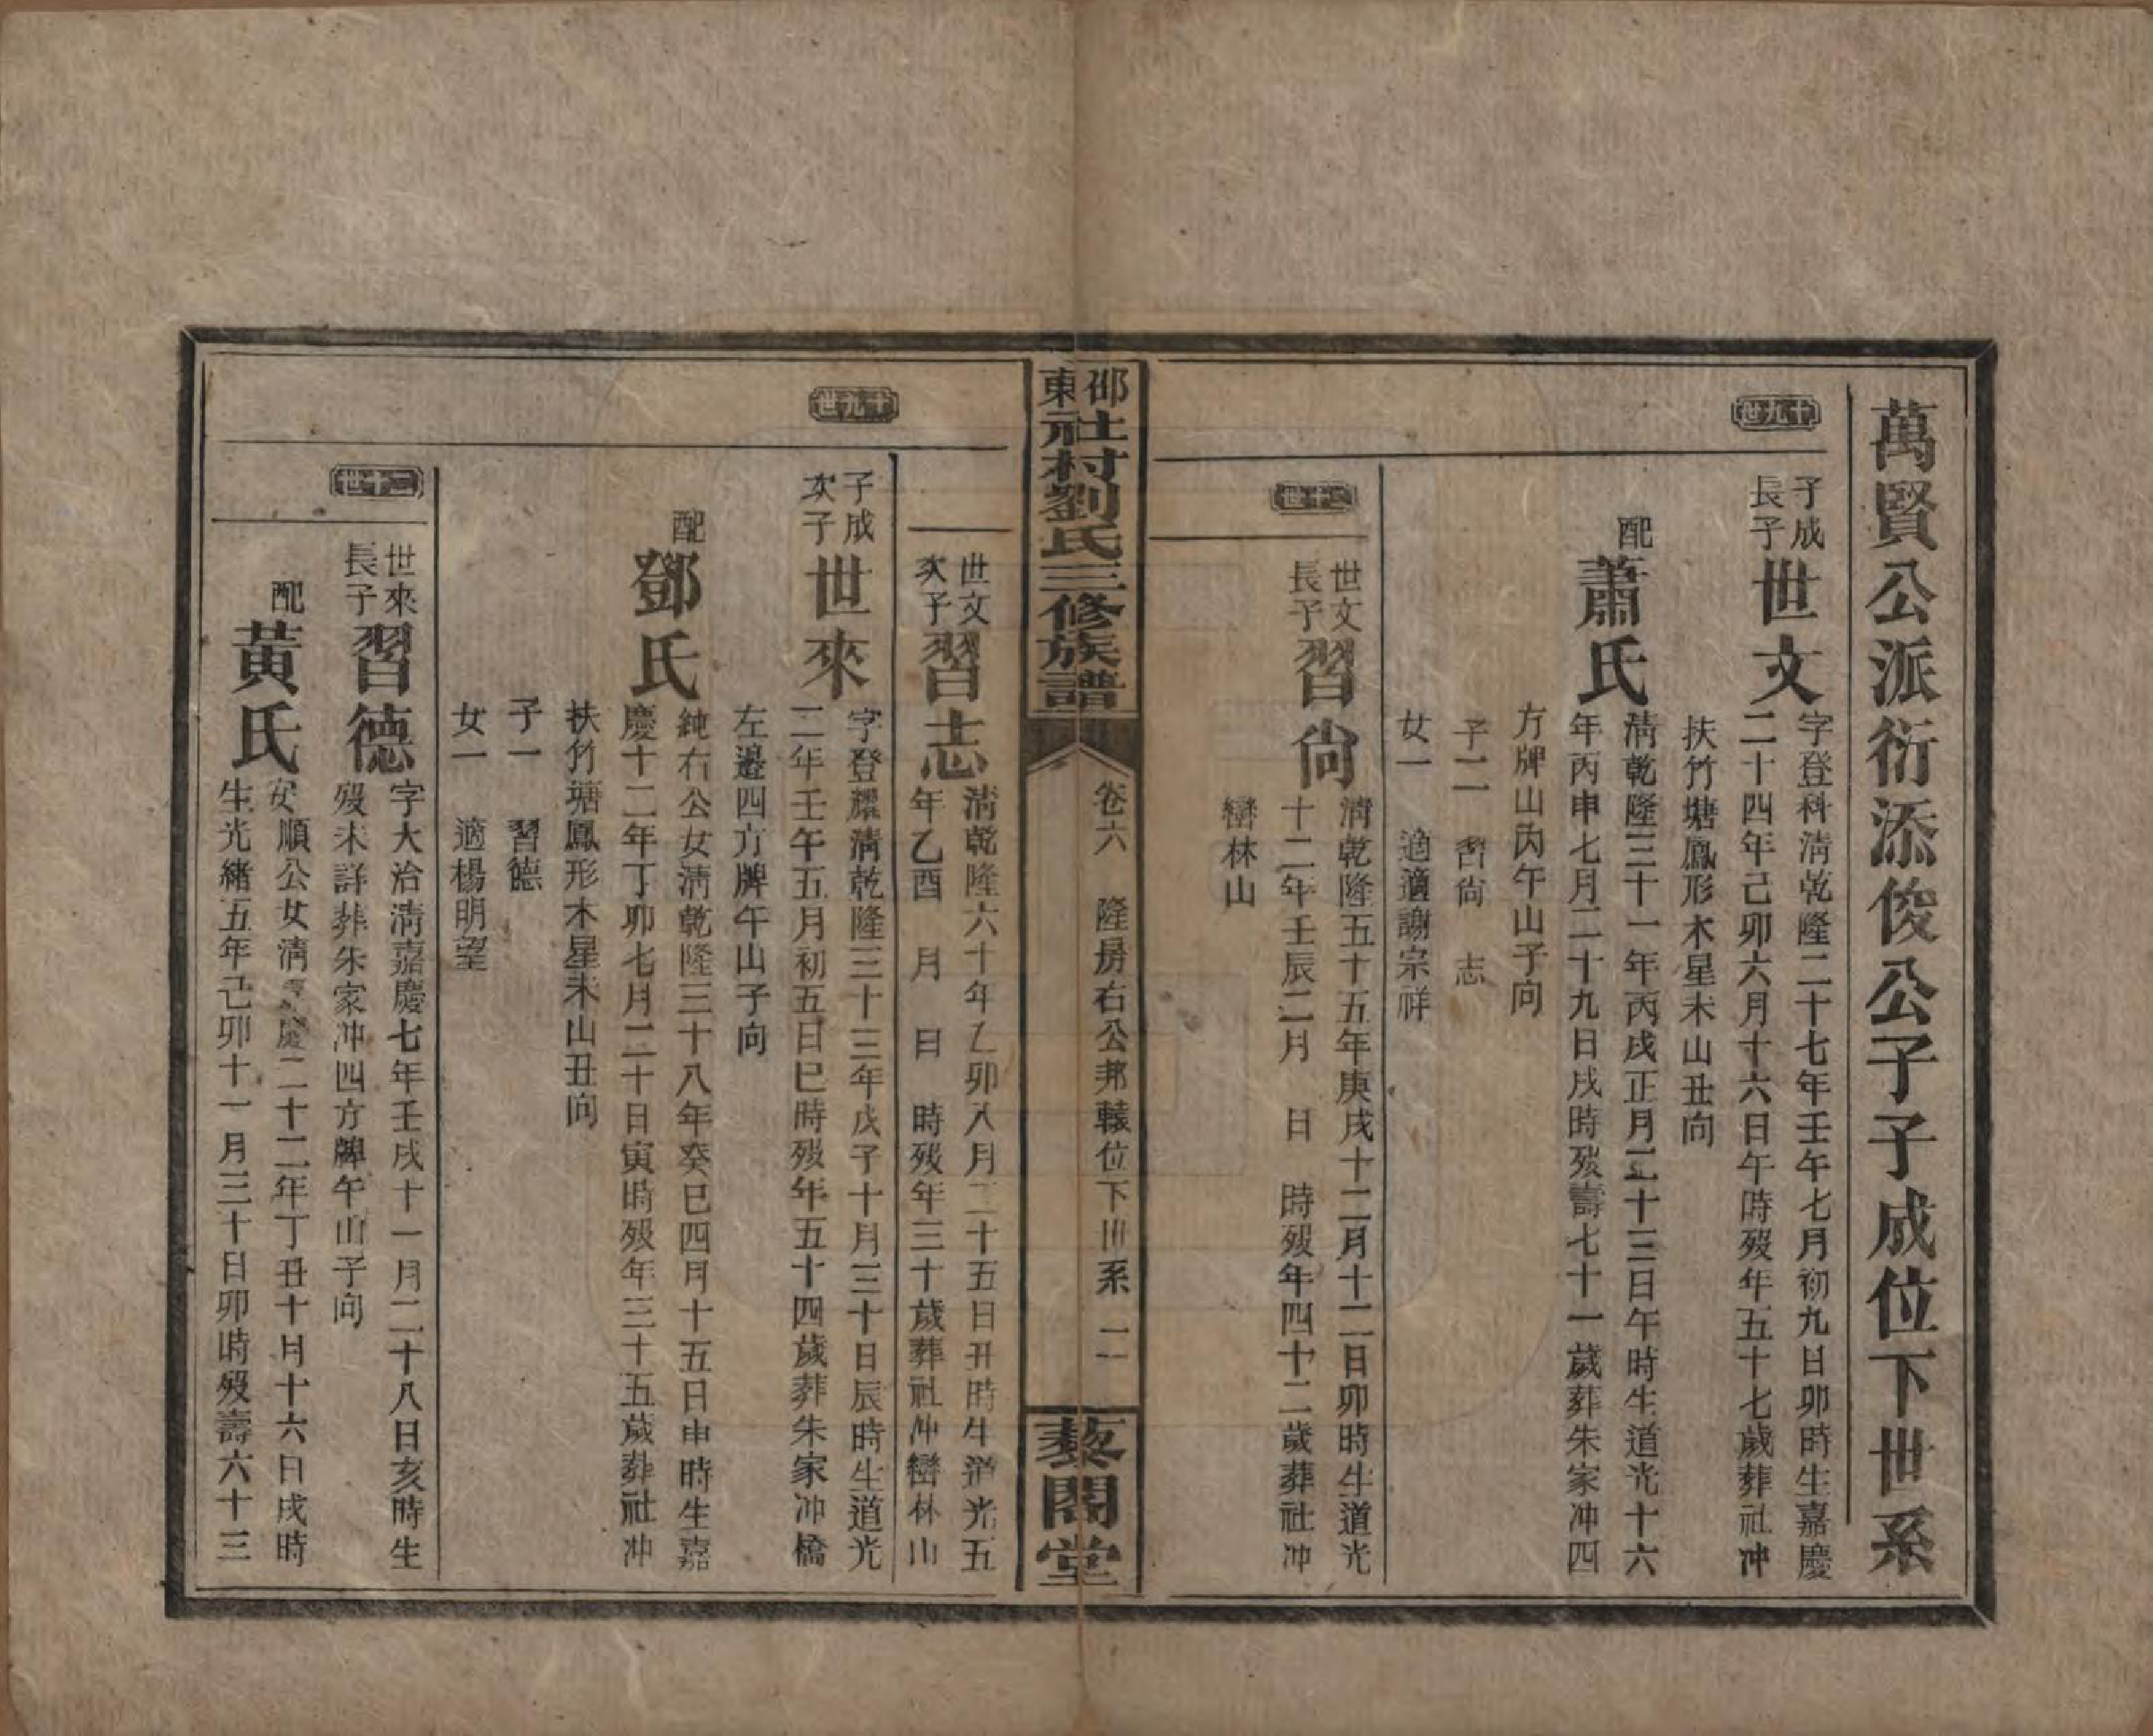 萬賢公派衍添俊公子子成位下世系
十九世
子成
長子
世文
字登科淸乾隆二十七年壬午七月初九日卯時生嘉慶
二十四年己卯六月十六日午時歿年五十七歲葬社冲
扶竹塘鳳形木星未山丑向
配
蕭氏
淸乾隆三十一年丙戌正月二十三日午時生道光十六
年丙申七月二十九日戌時歿壽七十一歲葬朱家冲四
方牌山丙午山子向
子二 習尙 志
女一 適適謝宗祥
二十世
世文
長子
習尙
淸乾隆五十五年庚戌十二月十二日卯時生道光
十二年壬辰二月 日 時歿年四十二歲葬社冲
巒林山
邵東社村劉氏三修族譜
卷六 隆房右公邦轅位下世系 二
藜閣堂
世文
次子
習志
淸乾隆六十年乙卯八月二十五日丑時生道光五
年乙酉 月 日 時歿年三十歲葬社冲巒林山
十九世
子成
次子
世來
字登耀淸乾隆三十三年戊子十月三十日辰時生道光
二年壬午五月初五日巳時歿年五十四歲葬朱家冲橋
左邊四方牌午山子向
配
鄧氏
純石公女淸乾隆三十八年癸巳四月十五日申時生嘉
慶十二年丁卯七月二十日寅時歿年三十五歲葬社冲
扶竹塘鳳形木星未山丑向
子一 習德
女一 適楊明望
二十世
世來
長子
習德
字大治淸嘉慶七年壬戌十一月二十八日亥時生
歿未詳葬朱家冲四方牌午山子向
配
黃氏
安順公女淸嘉慶二十二年丁丑十月十六日戌時
生光緒五年己卯十一月三十日卯時歿壽六十三